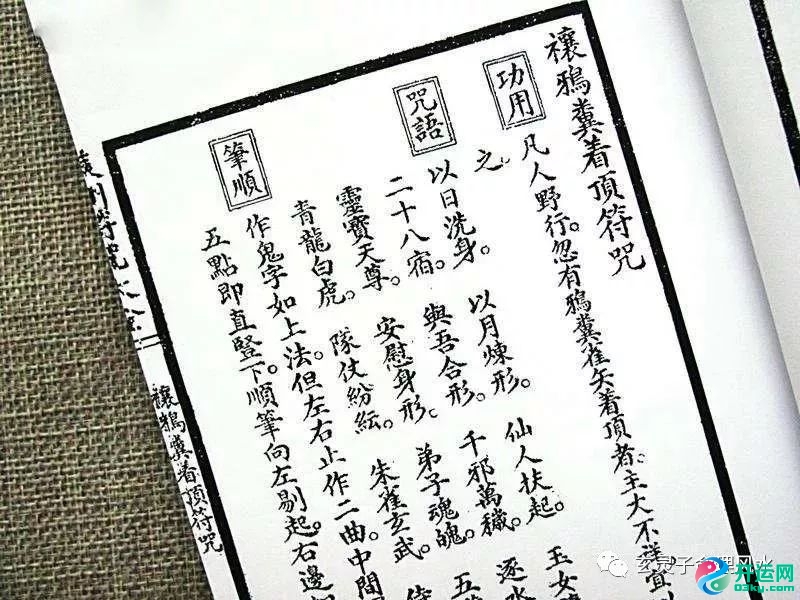 禳鴉糞着頂符咒
功用
凡人野行。忽有鴉糞雀矢着頂者。主大不祥。宜
之
咒語
以日洗身。 以月煉形。 仙人扶起。 玉女
二十八宿。 與吾合形。 千邪萬穢。 逐水
靈寶天尊。 安慰身形。 弟子魂魄。 五
青龍白虎。 隊仗紛紜。 朱雀玄武。 侍
筆順
作鬼字如上法。但左右止作二曲。中間
五點即直豎下。順筆向左剔起。右邊
符咒大全
禳鴉糞着頂符咒
玄灵子命理风水
开运网
OZKY.COM